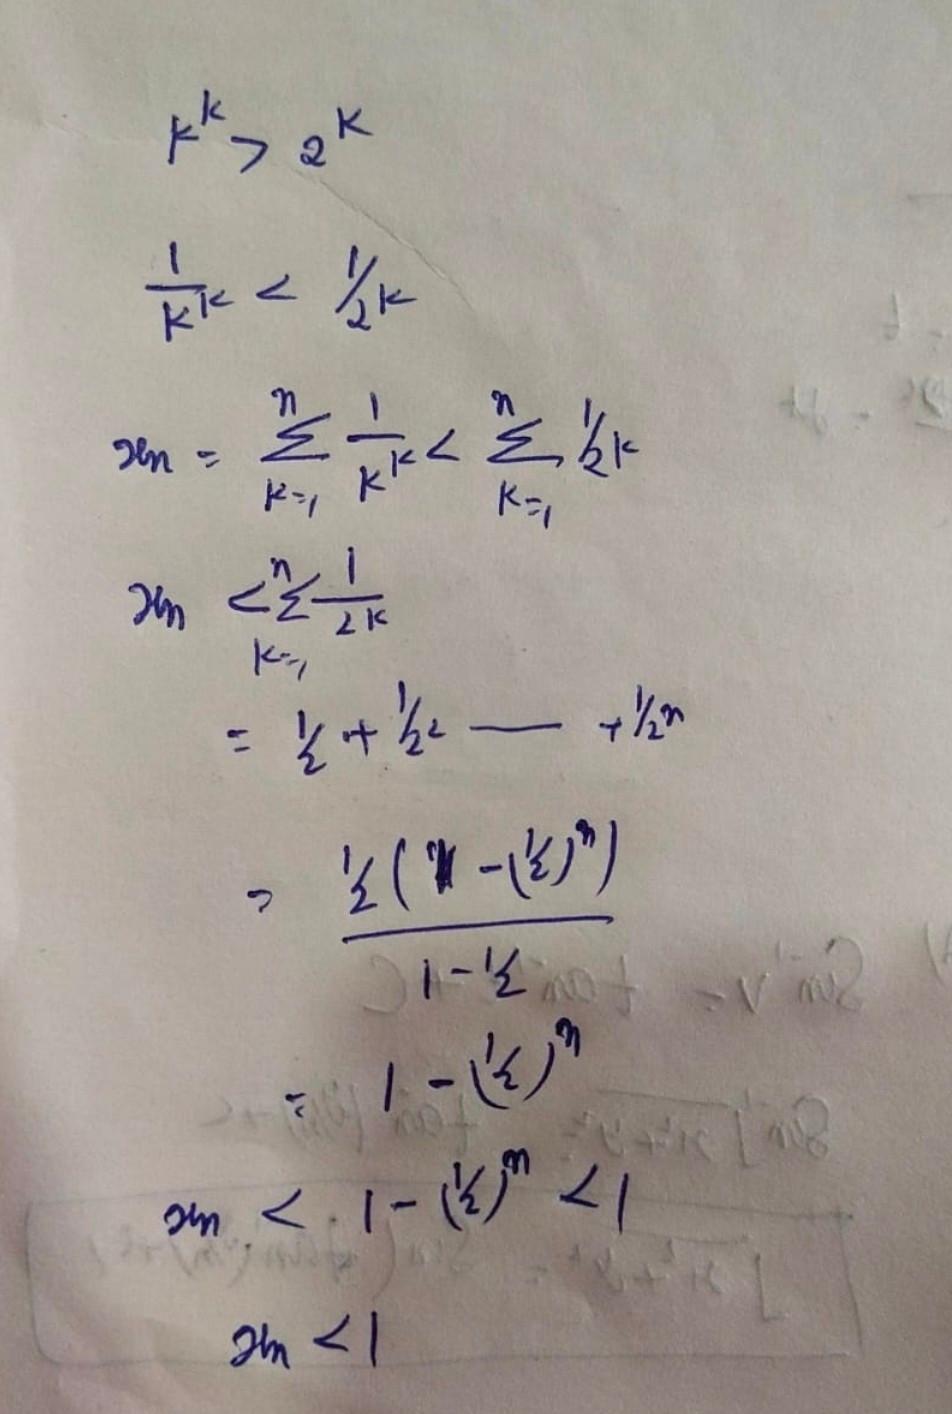 k^k > 2^k
1/k^k < 1/2^k
xn = n∑k=1 1/k^k < n∑k=1 1/2^k
xn < n∑k=1 1/2^k
= 1/2 + 1/2^2 — + 1/2^n
= 1/2 (1 - (1/2)^n) / 1 - 1/2
= 1 - (1/2)^n
xn < 1 - (1/2)^n < 1
xn < 1